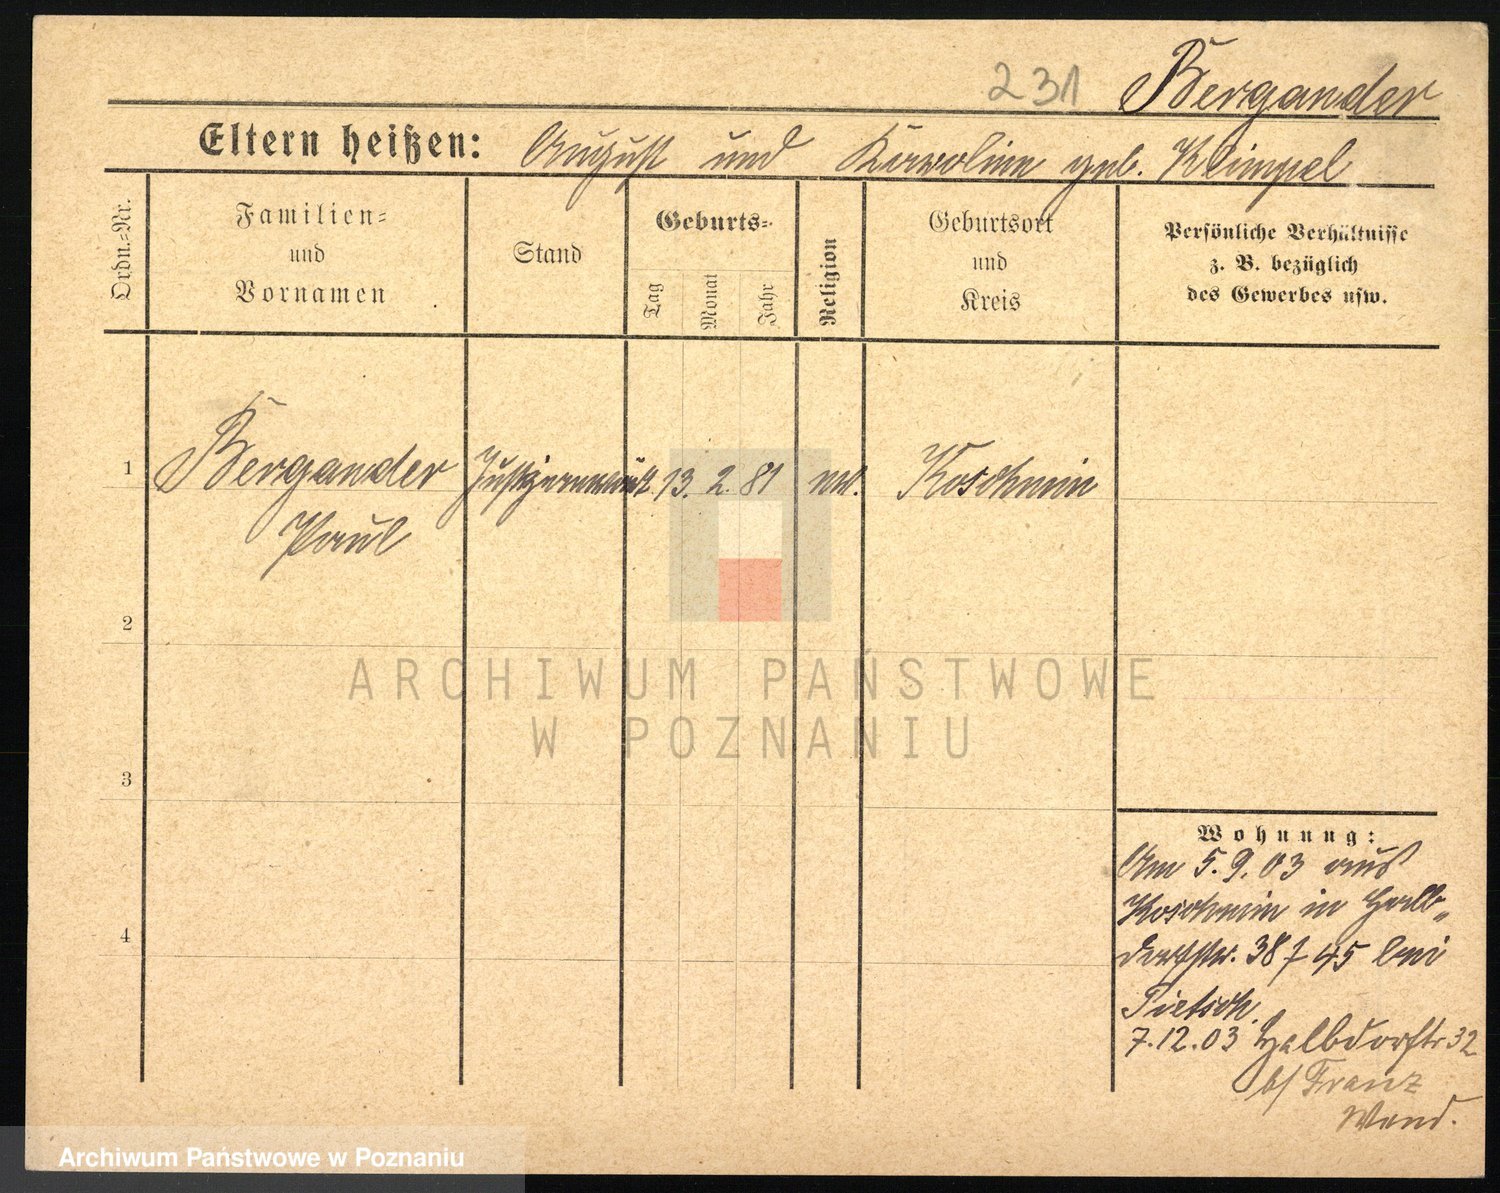 231 Bergander
Eltern heißen: August und Karoline geb. Klimpel
Ordn.=Nr.
Familien=
und
Vornamen
Stand
Geburts=
Tag
Monat
Jahr
Religion
Geburtsort
und
Kreis
Persönliche Verhältnisse
z. B. bezüglich
des Gewerbes usw.
1 Bergander 13. 2. 81 ev. Koschmin
Paul
2
3
4
Wohnung:
Am 5.9.03 aus
Koschmin in Halb„
dorfstr. 38 f 45 bei
Pietsch.
7.12.03 Halbdorfstr 32
b/ Franz
Wand.
ARCHIWUM PAŃSTWOWE
W POZNANIU
Archiwum Państwowe w Poznaniu